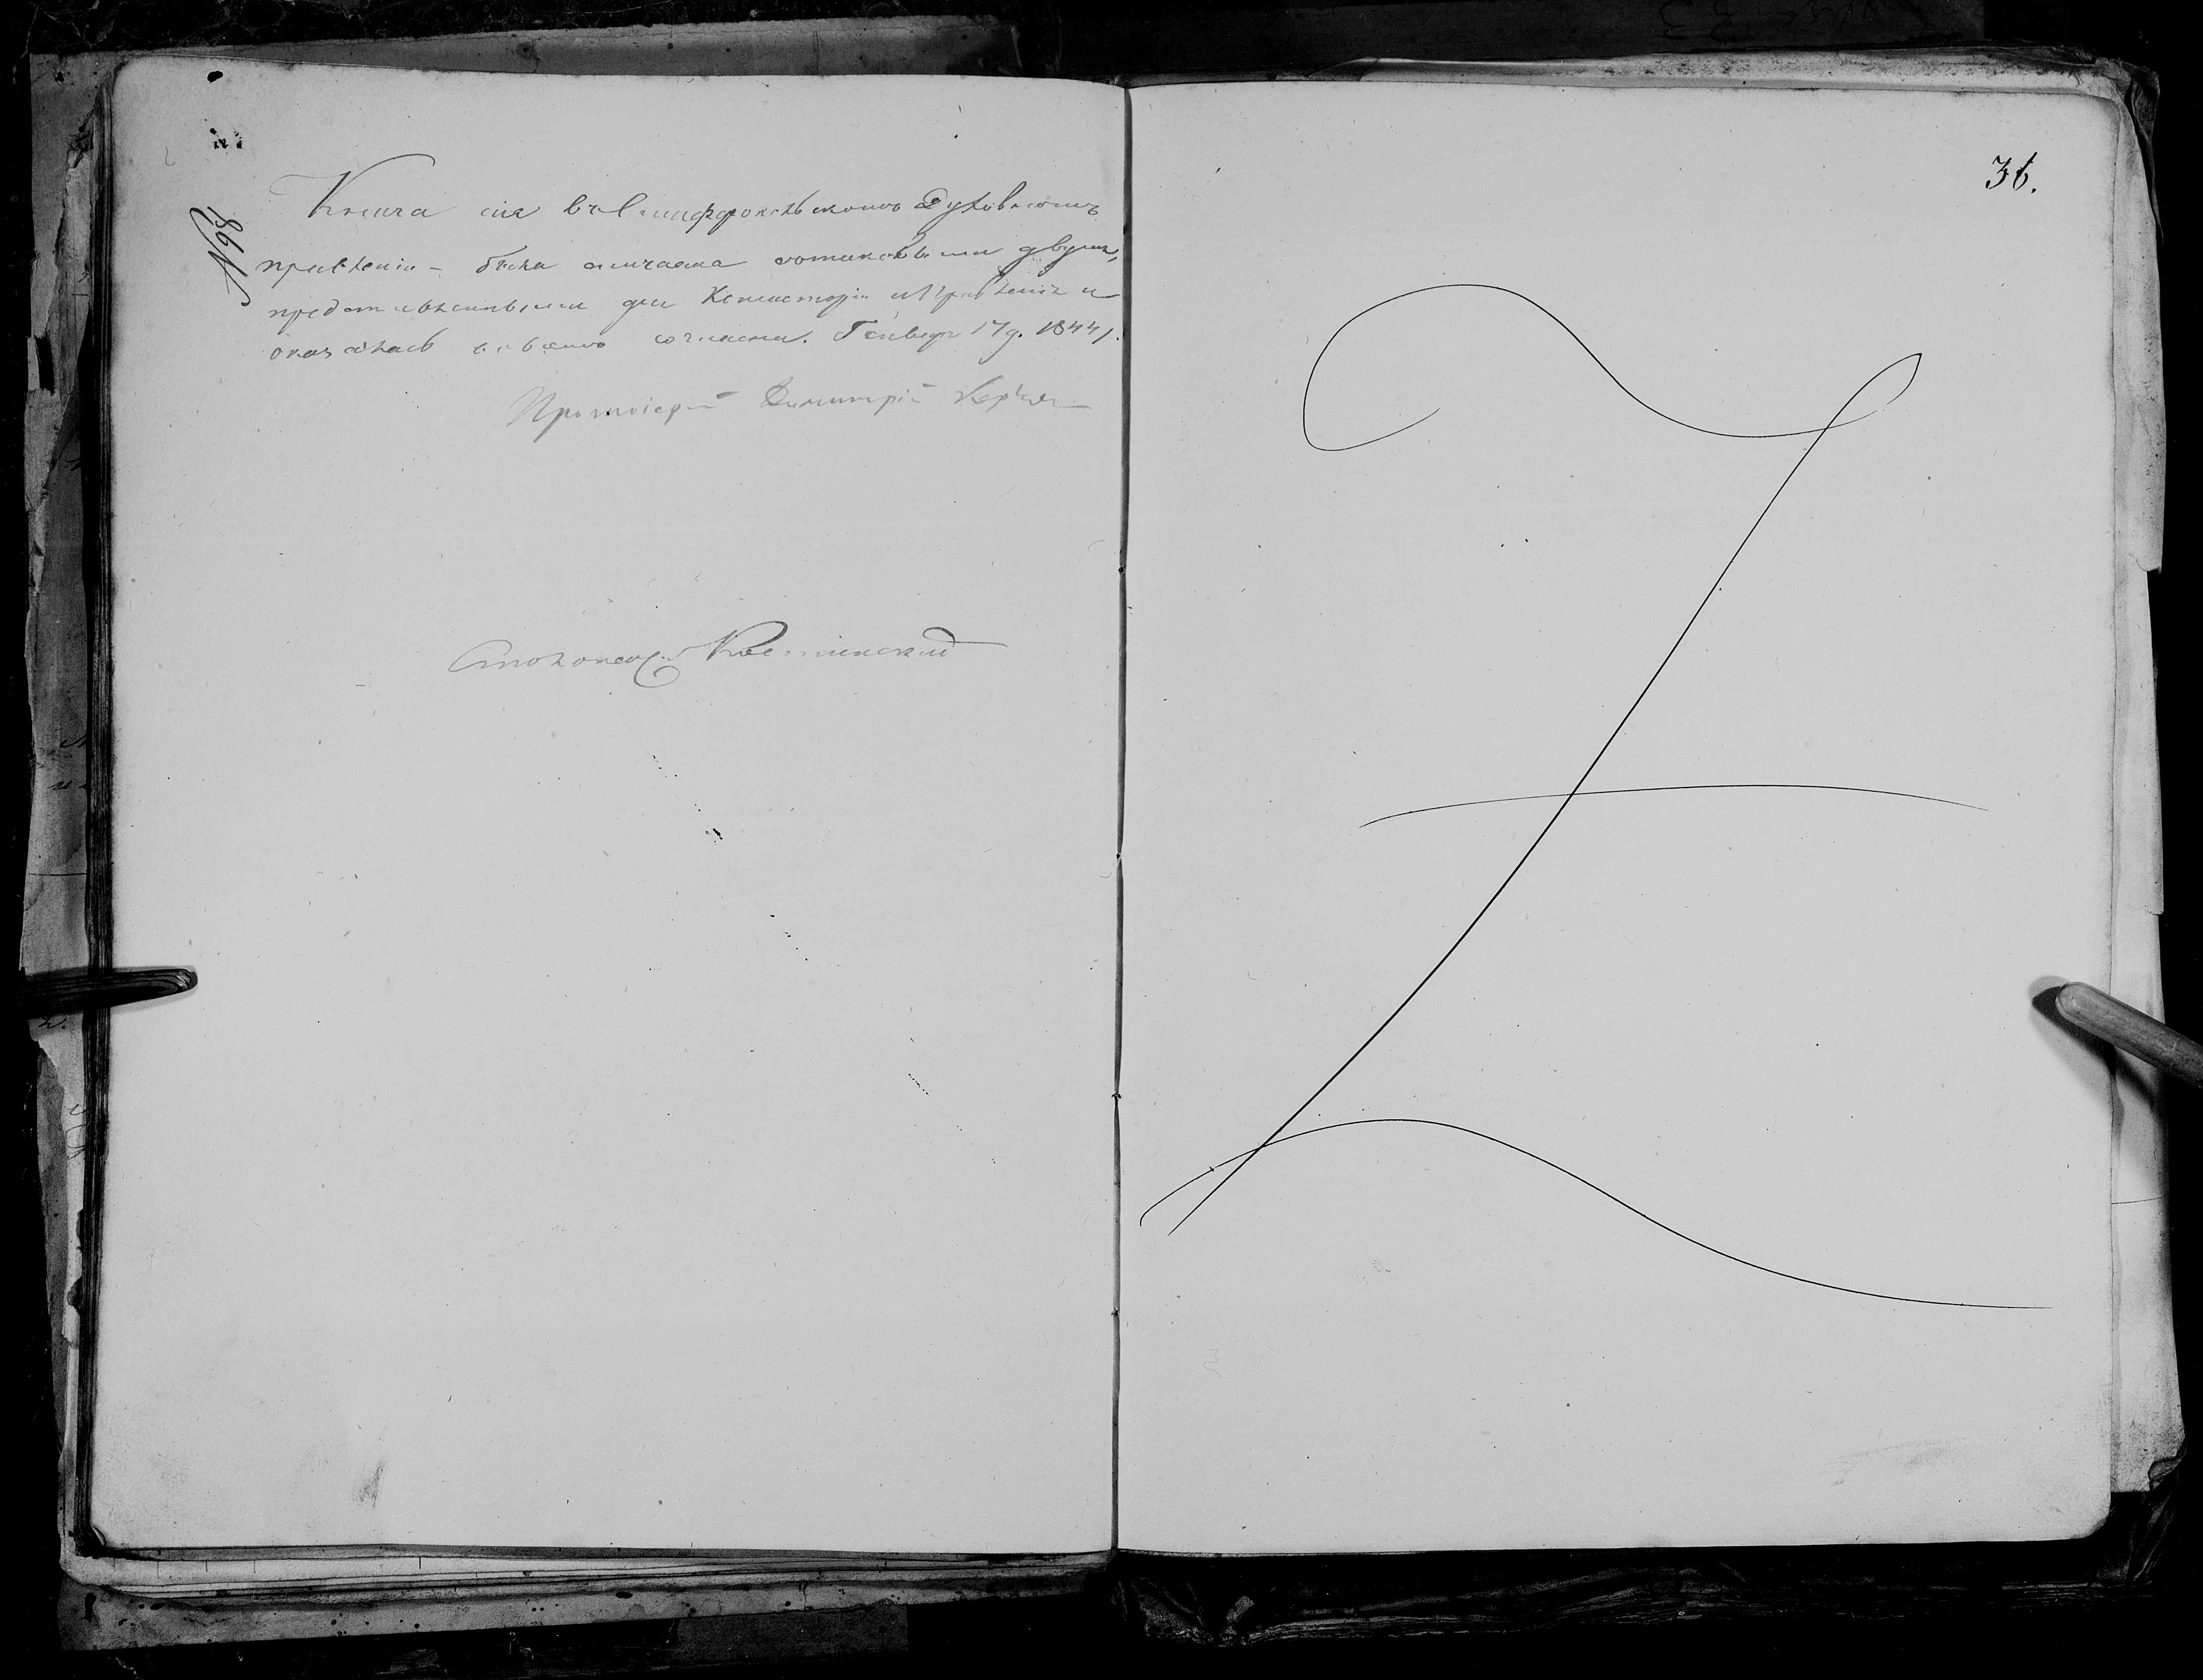 № 98
Книга сія въ Симферопольскомъ Духовномъ
правленіи – была сличаема сотаковыми двумя,
представленными для Консисторіи и Правленія и
оказалась вовсемъ согласна. Генваря 17 д. 1844 г.
Протоіерей Димитрій
Столонач.
36.